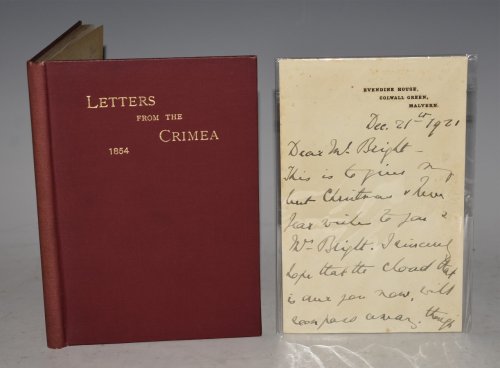 LETTERS
FROM THE
CRIMEA
1854
EVENDINE HOUSE,
COLWALL GREEN,
MALVERN.
Dec. 21st 1921
Dear Mr. Bright –
This is to give my
best Christmas & New
Year wishes to you &
Mrs Bright. I sincerely
hope that the cloud that
is over you now, will
soon pass away, though